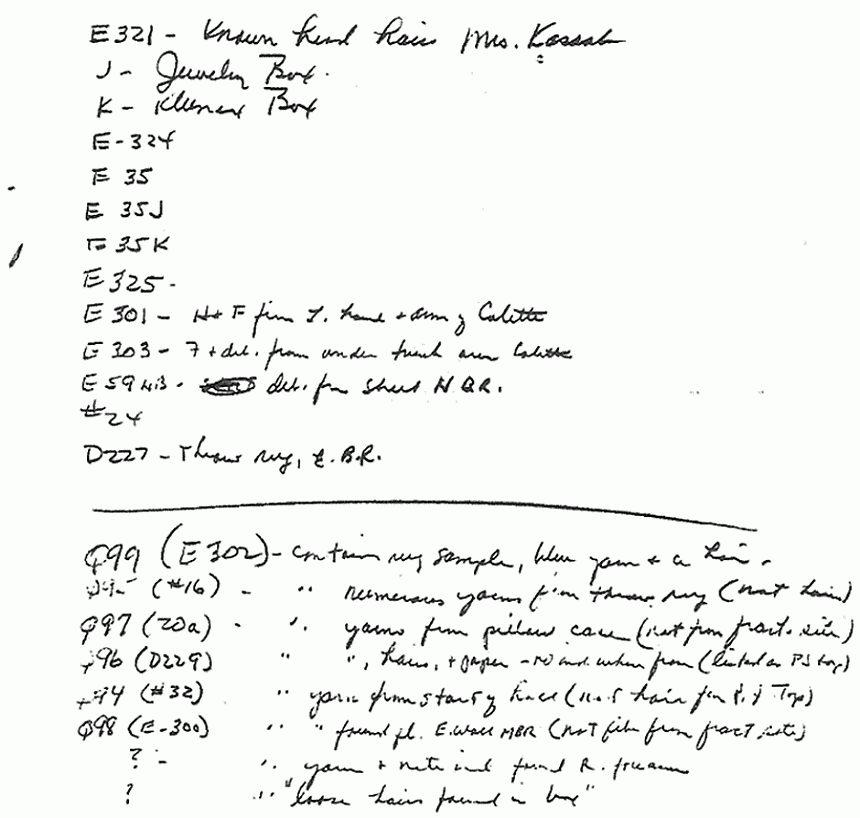 E321 - Known head hair Mrs. Kassab
J - Jewelry Box.
K - Kleenex Box
E-324
E 35
E 35J
E 35K
E325 -
E 301 - H+F from L. hand + arm of Colette
E 303 - 7 + deb. from under trunk area Colette
E 59 NB - deb. from sheet N.B.R.
#24
D227 - Throw rug, E.B.R.
Q99 (E302) - contain rug sample, blue yarn + a hair.
(#16) - " numerous yarns from throw rug (not hair)
Q97 (20a) - " yarns from pillow case (not from fract. site)
Q96 (D229) " ", hairs, + paper - from (listed as PJ top)
Q94 (#32) " yarn from hall (not hair from P.J Top)
Q98 (E-300) " " found fl. E. Wall MBR (not from fract. site)
? - " yarn + found R. forearm
? " "loose hairs found in box"